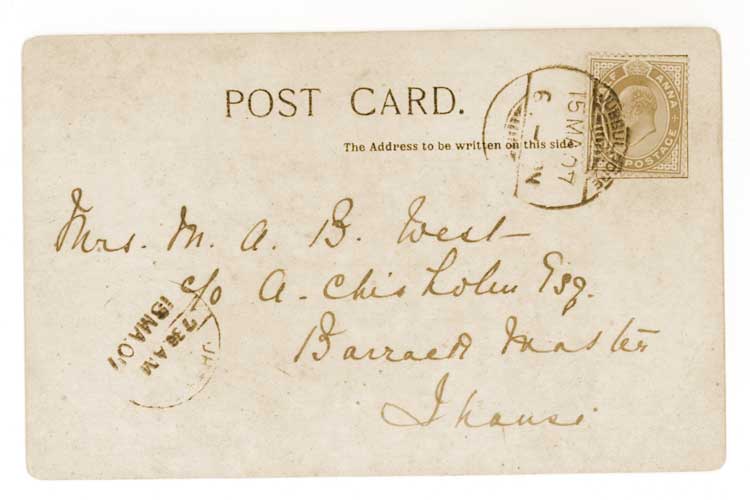 POST CARD.
The Address to be written on this side.
HALF ANNA
POSTAGE
15 MA 07
Mrs. M. A. B. West
c/o A. Chisholm Esq.
Barrack Master
Jhansi
7 30 AM
15 MA 07